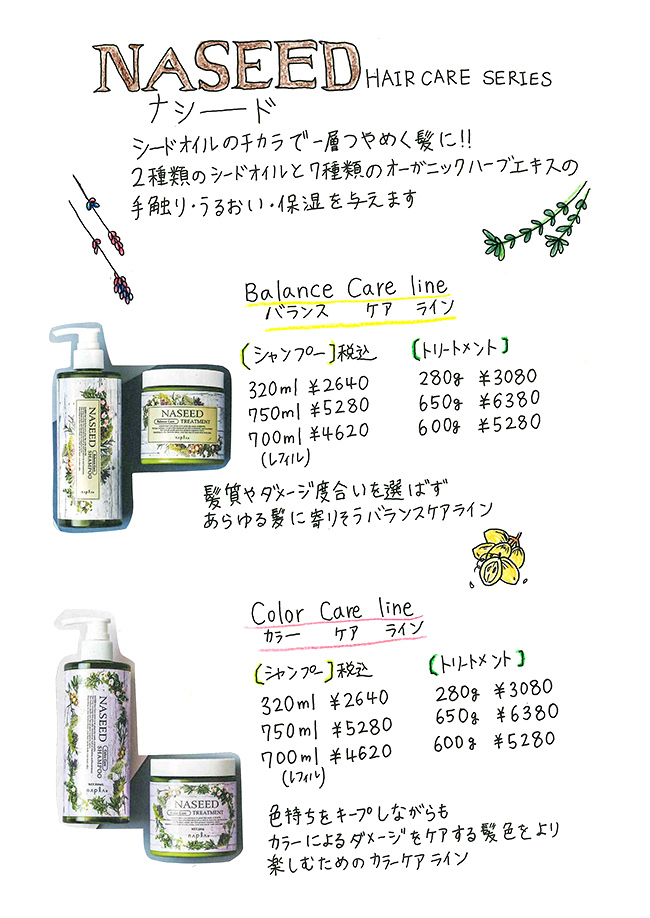 NASEED HAIR CARE SERIES
ナシード
シードオイルのチカラで一層つやめく髪に!!
2種類のシードオイルと7種類のオーガニックハーブエキスの
手触り・うるおい・保湿を与えます
Balance Care line
バランス ケア ライン
[シャンプー]税込
320ml ¥2640
750ml ¥5280
700ml ¥4620
(レフィル)
[トリートメント]
280g ¥3080
650g ¥6380
600g ¥5280
NASEED
SHAMPOO
napla
NASEED
Balance Care
TREATMENT
napla
髪質やダメージ度合いを選ばず
あらゆる髪に寄りそうバランスケアライン
Color Care line
カラー ケア ライン
[シャンプー]税込
320ml ¥2640
750ml ¥5280
700ml ¥4620
(レフィル)
[トリートメント]
280g ¥3080
650g ¥6380
600g ¥5280
NASEED
SHAMPOO
napla
NASEED
Color Care
TREATMENT
napla
色持ちをキープしながらも
カラーによるダメージをケアする髪色をより
楽しむためのカラーケアライン